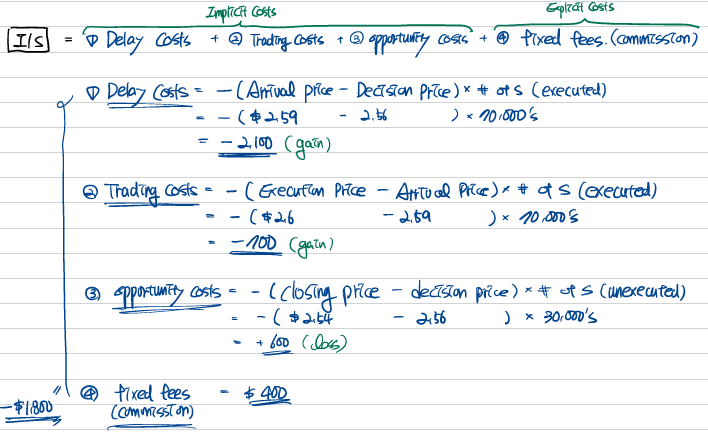 Implicit Costs Explicit Costs
I/S = ① Delay Costs + ② Trading Costs + ③ opportunity costs + ④ fixed fees. (commission)
① Delay Costs = - (Arrival price - Decision Price) × # of S (executed)
= - ($2.59 - 2.56 ) × 70,000's
= - 2,100 (gain)
② Trading Costs = - (Execution Price - Arrival Price) × # of S (executed)
= - ($2.6 - 2.59 ) × 70,000's
= - 700 (gain)
③ opportunity costs = - (closing price - decision price) × # of S (unexecuted)
= - ($2.54 - 2.56 ) × 30,000's
= + 600 (loss)
④ fixed fees = $400
(commission)
-$1,800